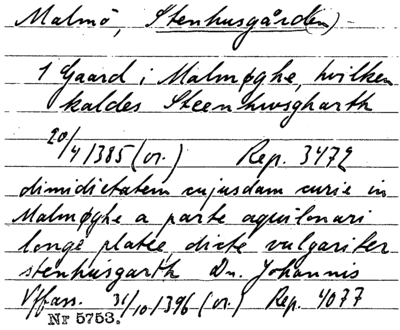 Malmö, Stenhusgård(en)
1 Gaard i Malmøghe, hvilken
kaldes Steenhwsgharth
20/4 1385 (or.) Rep. 3472
dimidietatem cujusdam curie in
Malmøghe a parte aquilonari
longe platee dicte vulgariter
stenhusgarth Dn. Johannis
Uffass. 31/10 1396 (or.) Rep. 4077
Nr 5753.